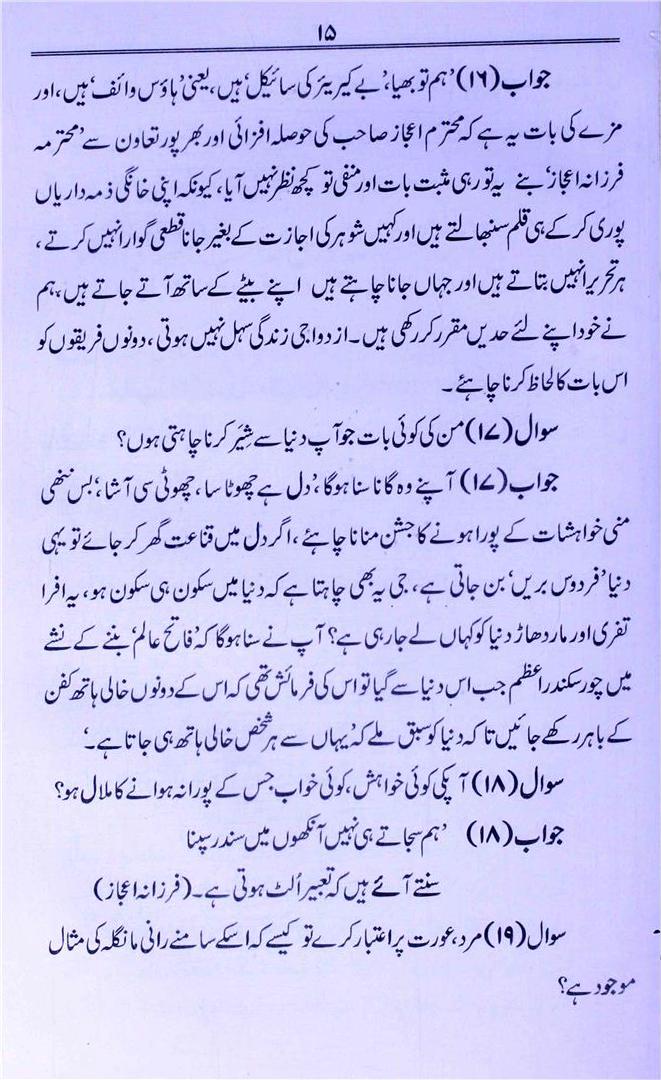 ۱۵
جواب (۱۶) ’ہم تو بھیا، ’بے کیریئر کی سائیکل‘ ہیں، یعنی ’ہاؤس وائف‘ ہیں، اور
مزے کی بات یہ ہے کہ محترم اعجاز صاحب کی حوصلہ افزائی اور بھرپور تعاون سے ’محترمہ
فرزانہ اعجاز‘ بنے یہ تو رہی مثبت بات اور منفی تو کچھ نظر نہیں آیا، کیونکہ اپنی خانگی ذمہ داریاں
پوری کر کے ہی قلم سنبھالتے ہیں اور کہیں شوہر کی اجازت کے بغیر جانا قطعی گوارا نہیں کرتے،
ہر تحریر انہیں بتاتے ہیں اور جہاں جانا چاہتے ہیں اپنے بیٹے کے ساتھ آتے جاتے ہیں، ہم
نے خود اپنے لئے حدیں مقرر کر رکھی ہیں۔ ازدواجی زندگی سہل نہیں ہوتی، دونوں فریقوں کو
اس بات کا لحاظ کرنا چاہئے۔
سوال (۱۷) من کی کوئی بات جو آپ دنیا سے شیئر کرنا چاہتی ہوں؟
جواب (۱۷) آپنے وہ گانا سنا ہوگا، ’دل ہے چھوٹا سا، چھوٹی سی آشا‘، بس ننھی
منی خواہشات کے پورا ہونے کا جشن منانا چاہئے، اگر دل میں قناعت گھر کر جائے تو یہی
دنیا ’فردوس بریں‘ بن جاتی ہے، جی یہ بھی چاہتا ہے کہ دنیا میں سکون ہی سکون ہو، یہ افرا
تفری اور مار دھاڑ دنیا کو کہاں لے جا رہی ہے؟ آپ نے سنا ہوگا کہ ’فاتح عالم‘ بننے کے نشے
میں چور سکندر اعظم جب اس دنیا سے گیا تو اس کی فرمائش تھی کہ اس کے دونوں خالی ہاتھ کفن
کے باہر رکھے جائیں تا کہ دنیا کو سبق ملے کہ ’یہاں سے ہر شخص خالی ہاتھ ہی جاتا ہے۔‘
سوال (۱۸) آپکی کوئی خواہش، کوئی خواب جس کے پورا نہ ہوانے کا ملال ہو؟
جواب (۱۸) ’ہم سجاتے ہی نہیں آنکھوں میں سندر سپنا
سنتے آئے ہیں کہ تعبیر اُلٹ ہوتی ہے۔ (فرزانہ اعجاز)
سوال (۱۹) مرد، عورت پر اعتبار کرے تو کیسے کہ اسکے سامنے رانی مانگلہ کی مثال
موجود ہے؟